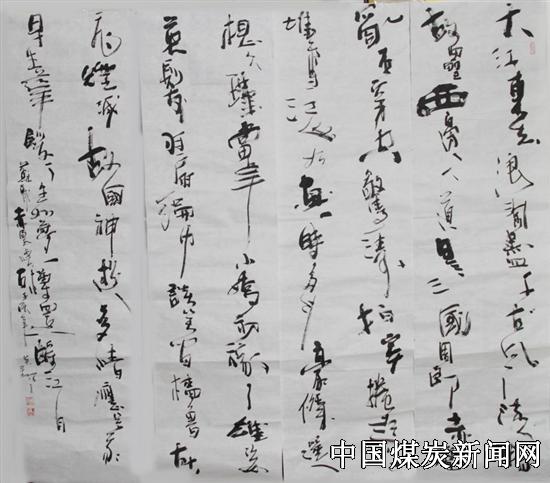 大江東去浪淘盡千古風流人物
故壘西邊人道是三國周郎赤
亂石穿空驚濤拍岸捲起
堆雪江山如畫一時多少豪傑遙
想公瑾當年小喬初嫁了雄姿
英發羽扇綸巾談笑間檣櫓灰
飛煙滅故國神遊多情應笑我
早生華髮人生如夢一尊還酹江月
蘇軾赤壁懷古
中国煤炭新闻网